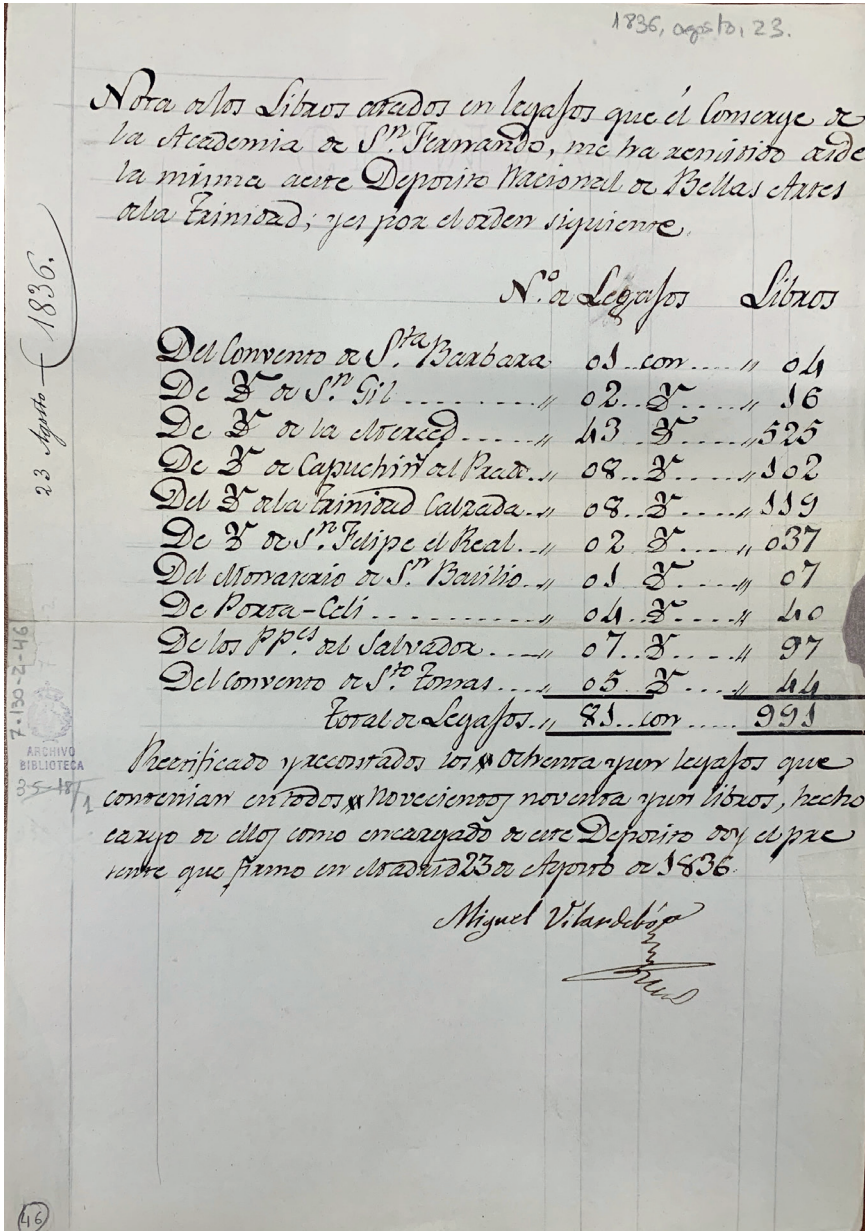 1836, agosto, 23.
Nota de los Libros atados en legajos que el Conserge de
la Academia de Sn. Fernando, me ha remitido desde
la misma a este Deposito Nacional de Bellas Artes
de la Trinidad; y es por el orden siguiente.
23 Agosto — 1836.
N.o de Legajos Libros
Del Convento de S.ta Barbara 01 con .... „ 04
De Yd de S.n Gil ........ „ 02 .. Yd .... „ 16
De Yd de la Merced ....... „ 43 Yd .... „ 525
De Yd de Capuchin.s del Prado .. „ 08 .. Yd .... „ 102
Del Yd de la Trinidad Calzada .. „ 08 .. Yd .... „ 119
De Yd de S.n Felipe el Real .. „ 02 Yd .... „ 037
Del Monasterio de S.n Basilio .. „ 01 Yd .... „ 07
De Porta-Celi ......... „ 04 .. Yd .... „ 40
De los PP.es del Salvador .... „ 07 .. Yd .... „ 97
Del Convento de S.to Tomas .... „ 05 Yd .... „ 44
Total de Legajos „ 81 con .... 991
Rectificado y recontados los ochenta y un legajos que
contenian en todos novecientos noventa y un libros, hecho
cargo de ellos como encargado de este Deposito doy el pre
sente que firmo en Madrid 23 de Agosto de 1836.
Miguel Vilandebó
7-130-2-46
ARCHIVO
BIBLIOTECA
35-18/1
46